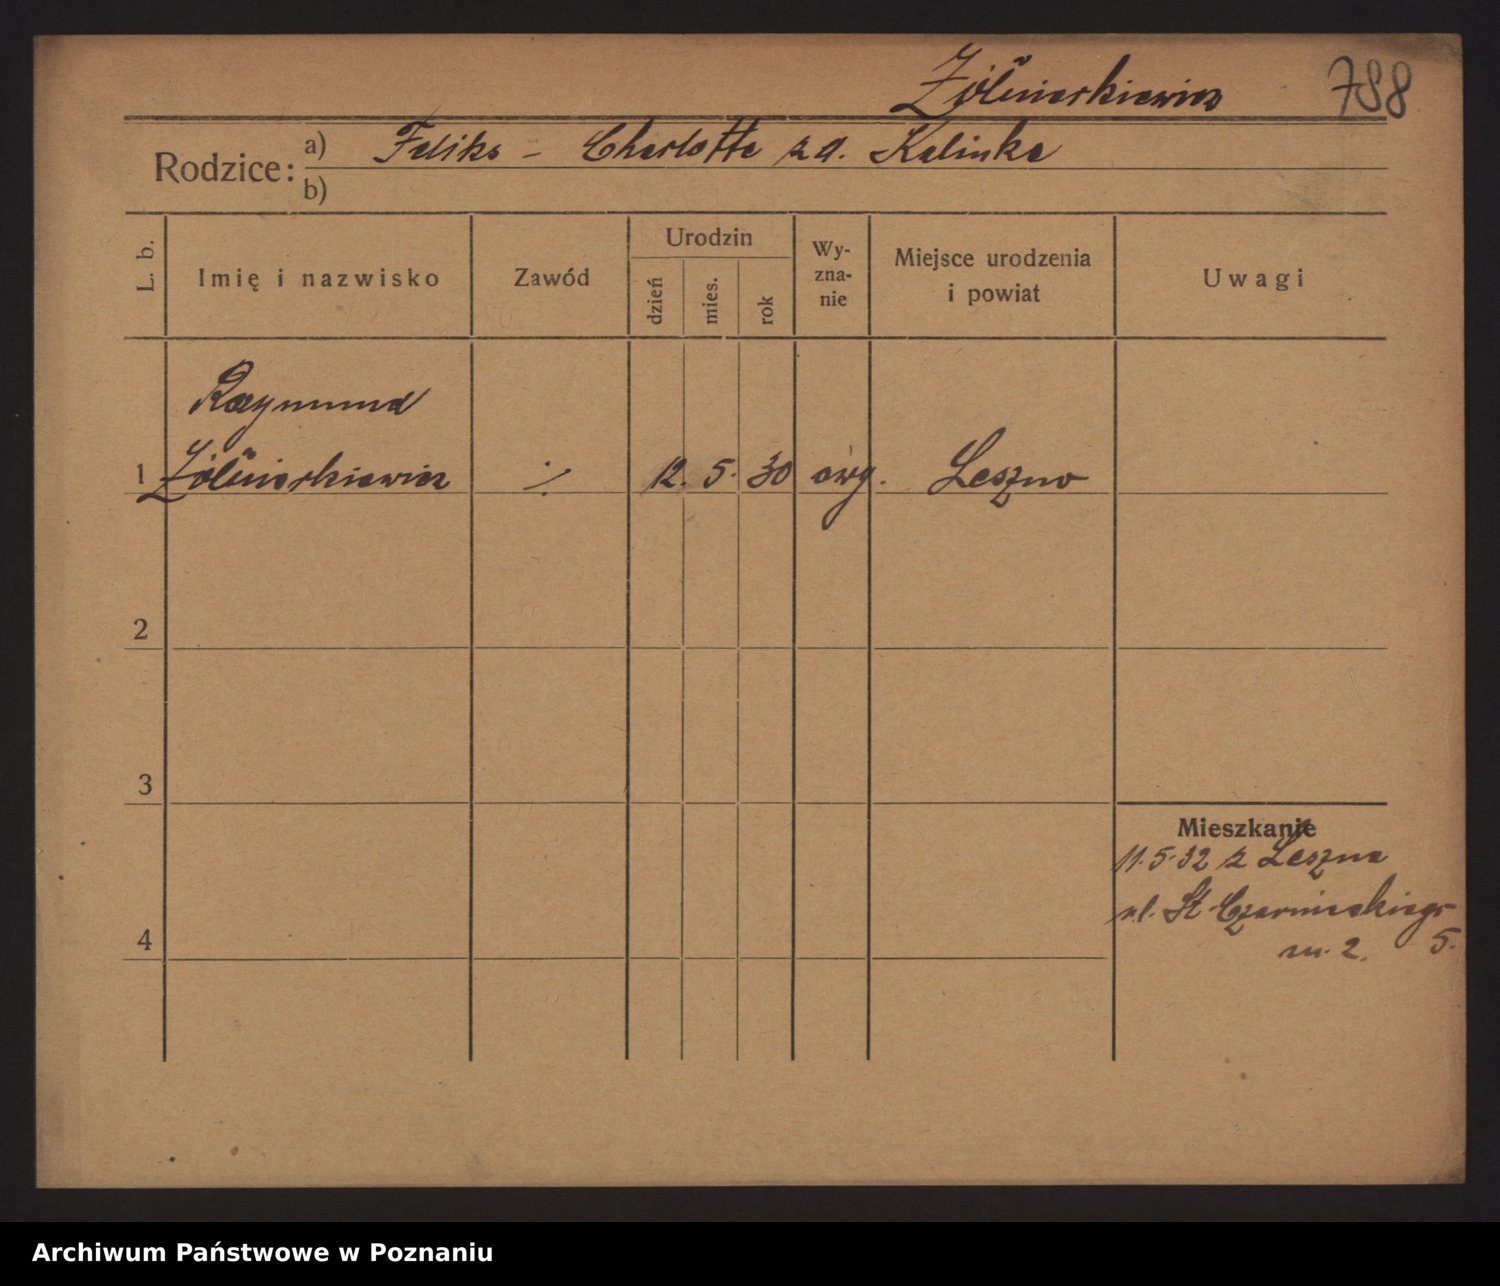 Żółnierkiewicz 788
Rodzice: a) Feliks - Charlotte z d. Kalinke
b)
L. b. Imię i nazwisko Zawód Urodzin dzień mies. rok Wy-zna-nie Miejsce urodzenia i powiat Uwagi
Raymund
1 Żółnierkiewicz ·/. 12. 5. 30 ewg. Leszno
2
3
Mieszkanie
11.5.32 z Leszna
ul. St Czarnieckiego
4 m. 2. 5.
Archiwum Państwowe w Poznaniu